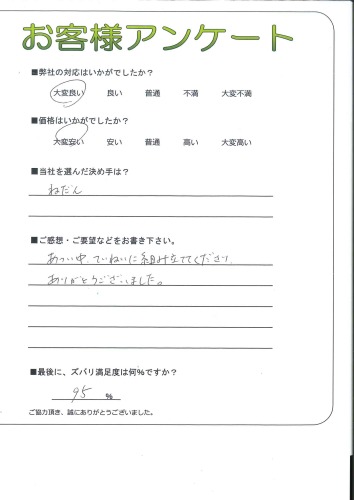 お客様アンケート
■弊社の対応はいかがでしたか？
大変良い 良い 普通 不満 大変不満
■価格はいかがでしたか？
大変安い 安い 普通 高い 大変高い
■当社を選んだ決め手は？
ねだん
■ご感想・ご要望などをお書き下さい。
あつい中、ていねいに組み立ててくださり
ありがとうございました。
■最後に、ズバリ満足度は何%ですか？
95 %
ご協力頂き、誠にありがとうございました。